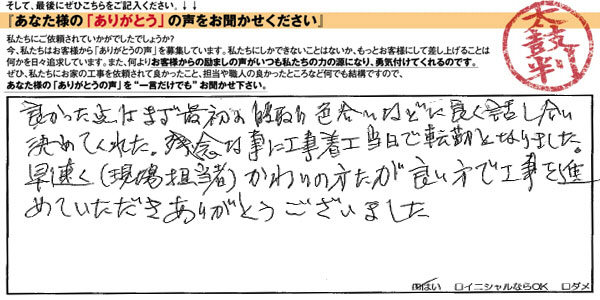 そして、最後にぜひこちらをご記入ください。↓↓
『あなた様の「ありがとう」の声をお聞かせください』
私たちにご依頼されていかがでしたでしょうか?
今、私たちはお客様から「ありがとうの声」を募集しています。私たちにしかできないことはないか、もっとお客様にして差し上げることは
何かを日々追求しています。また、何よりお客様からの励ましの声がいつも私たちの力の源になり、勇気付けてくれるのです。
ぜひ、私たちにお家の工事を依頼されて良かったこと、担当や職人の良かったところなど何でも結構ですので、
あなた様の「ありがとうの声」を"一言だけでも"お聞かせ下さい。
太鼓判
良かった点はまず最初の段取り色合いなどに良く話し合い
決めてくれた。残念な事に工事着工当日で転勤となりました。
早速く(現場担当者)かわりの方だが良い方で工事を進
めていただきありがとうございました
はい ロイニシャルならOK ロダメ